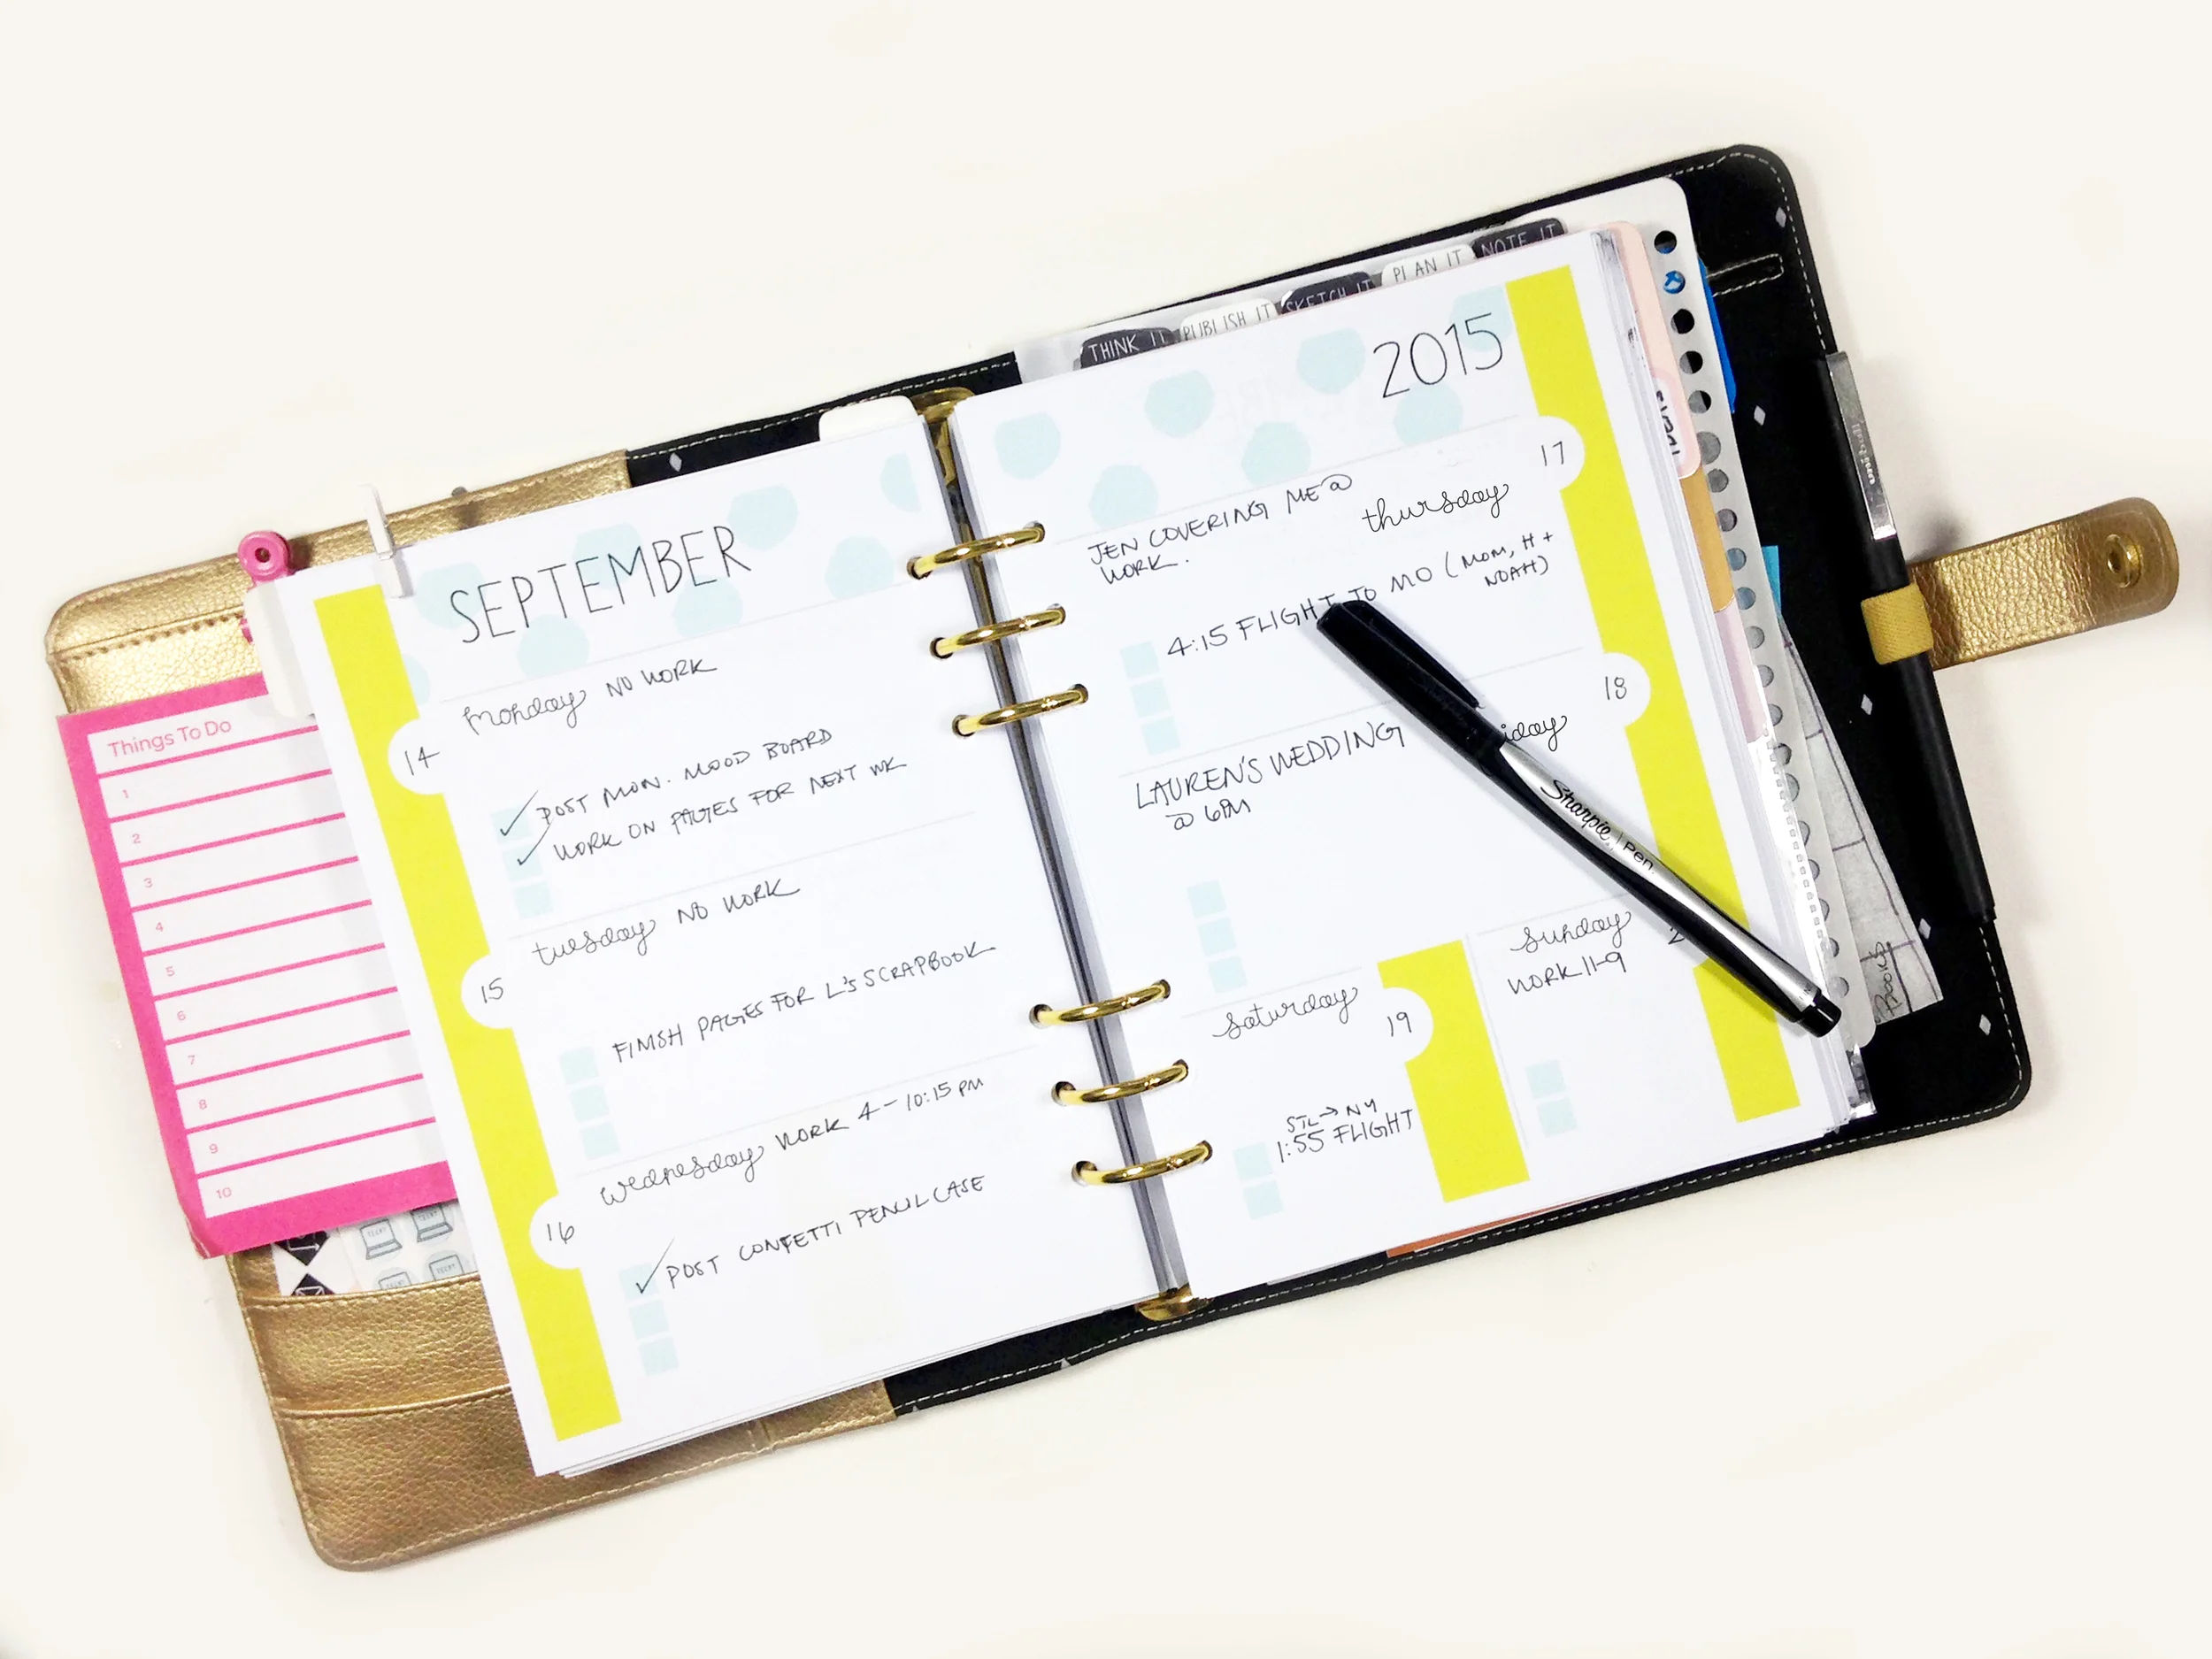 Things To Do
1
2
3
4
5
6
7
8
9
10
SEPTEMBER
monday NO WORK
14
POST MON. MOOD BOARD
WORK ON PAGES FOR NEXT WK
tuesday NO WORK
15
FINISH PAGES FOR L'S SCRAPBOOK
wednesday WORK 4-10:15 PM
16
POST CONFETTI PENCIL CASE
THINK IT
PUBLISH IT
SKETCH IT
PLAN IT
NOTE IT
2015
17
JEN COVERING ME @
WORK.
thursday
4:15 FLIGHT TO MO (MOM, H +
NOAH)
18
LAUREN'S WEDDING
iday
@ 6PM
saturday
19
STL → NY
1:55 FLIGHT
sunday
2
WORK 11-9
Sharpie | Pen.
Books